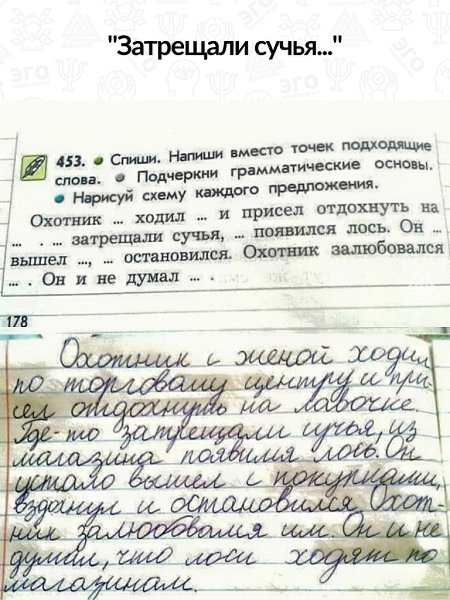 "Затрещали сучья..."
453. • Спиши. Напиши вместо точек подходящие
слова. • Подчеркни грамматические основы.
• Нарисуй схему каждого предложения.
Охотник ... ходил ... и присел отдохнуть на
... . ... затрещали сучья, ... появился лось. Он ...
вышел ..., ... остановился. Охотник залюбовался
... . Он и не думал ... .
178
Охотник с женой ходил
по торговому центру и при-
сел отдохнуть на лавочке.
Где-то затрещали сучья, из
магазина появился лось. Он
устало вышел с покупками,
вздохнул и остановился. Охот-
ник залюбовался им. Он и не
думал, что лоси ходят по
магазинам.